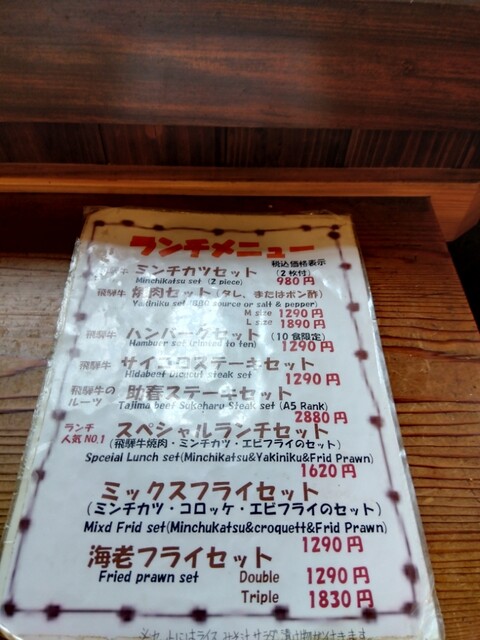 ランチメニュー
税込価格表示
飛騨牛 ミンチカツセット (2枚付)
Minchikatsu set (2 piece) 980円
飛騨牛 焼肉セット(タレ、またはポン酢)
Yakiniku set (BBQ source or salt & pepper)
M size 1290円
L size 1890円
飛騨牛 ハンバーグセット (10食限定)
Hamburr set (limited to ten) 1290円
飛騨牛 サイコロステーキセット
Hidabeef Dicecut steak set 1290円
飛騨牛のルーツ 助春ステーキセット
Tajima beef Sukeharu Steak set (A5 Rank)
2880円
ランチ人気NO.1 スペシャルランチセット
(飛騨牛焼肉・ミンチカツ・エビフライのセット)
Speceial Lunch set(Minchikatsu&Yakiniku&Frid Prawn)
1620円
ミックスフライセット
(ミンチカツ・コロッケ・エビフライのセット)
Mixd Frid set(Minchukatsu&croquett&Frid Prawn)
1290円
海老フライセット
Fried prawn set Double 1290円
Triple 1830円
※セットにはライス みそ汁 サラダ 漬け物が付きます